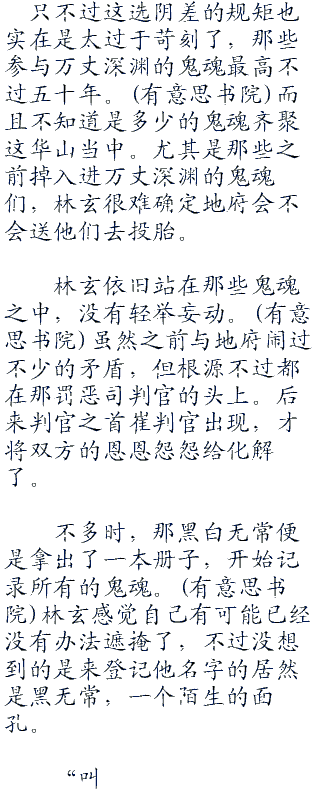 只不过这选阴差的规矩也
实在是太过于苛刻了，那些
参与万丈深渊的鬼魂最高不
过五十年。(有意思书院)而
且不知道是多少的鬼魂齐聚
这华山当中。尤其是那些之
前掉入进万丈深渊的鬼魂
们，林玄很难确定地府会不
会送他们去投胎。
林玄依旧站在那些鬼魂
之中，没有轻举妄动。(有意
思书院)虽然之前与地府闹过
不少的矛盾，但根源不过都
在那罚恶司判官的头上。后
来判官之首崔判官出现，才
将双方的恩恩怨怨给化解
了。
不多时，那黑白无常便
是拿出了一本册子，开始记
录所有的鬼魂。(有意思书
院)林玄感觉自己有可能已经
没有办法遮掩了，不过没想
到的是来登记他名字的居然
是黑无常，一个陌生的面
孔。
“叫